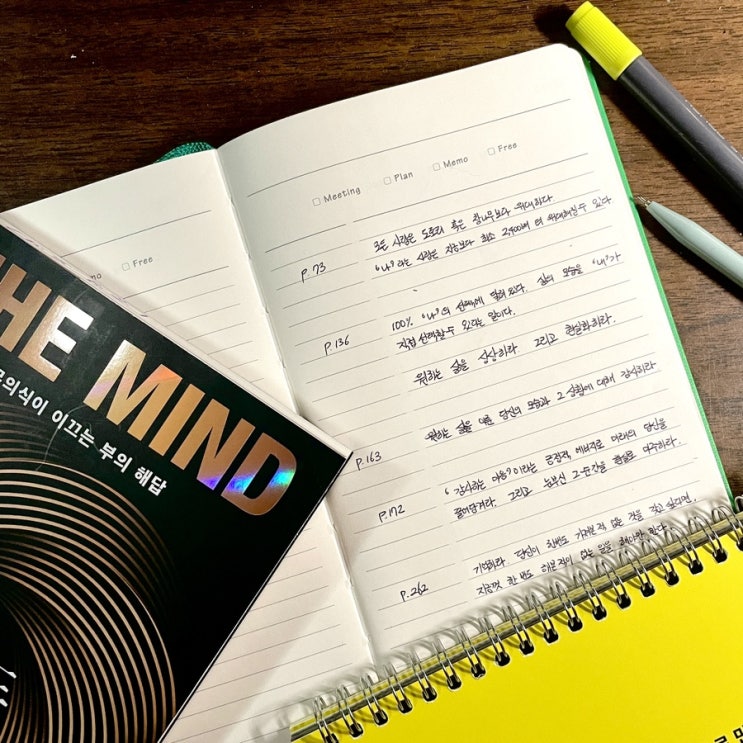 THE MIND
무의식이 이끄는 부의 해답
Free
□ Meeting □ Plan □ Memo □ Free
모든 사람은 도토리 혹은 참나무보다 위대하다
p.73 "나"라는 사람은 지금보다 최소 2400배 더 위대해질 수 있다
p.136 100% "나"의 선택에 달려 있다. 삶의 모습을 "내"가
직접 선택할 수 있다는 말이다.
원하는 삶을 상상하라 그리고 현실화하라.
p.163 원하는 삶을 이룬 당신의 모습과 그 상황에 대해 감사하라
p.172 "감사하는 마음"이라는 긍정적 에너지로 미래의 당신을
끌어당겨라. 그리고 눈부신 그 순간을 현실로 마주하라.
기억하라. 당신이 한번도 가져본 적 없는 것을 갖고 싶다면,
p.262 지금껏 한 번도 해본 적이 없는 일을 해야만 한다.